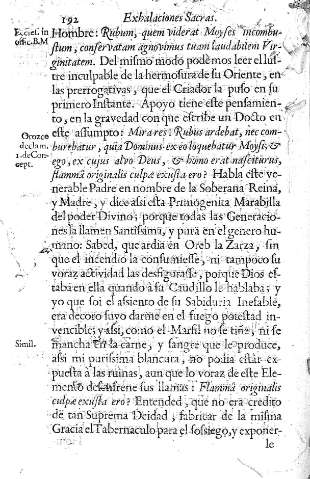 192 Exhalaciones Sacras.
Eccles. in offic. B.M
Hombre: Rubum, quem viderat Moyses incombu-
stum, conservatam agnovimus tuam laudabilem Vir-
ginitatem. Del mismo modo podemos leer el lus-
tre inculpable de la hermosura de su Oriente, en
las prerrogativas, que el Criador la puso en su
primero Instante. Apoyo tiene este pensamien-
to, en la gravedad con que escribe un Docto en
este assumpto: Mira res: Rubus ardebat, nec com-
Orozco declam. 1. de Con- cept.
burebatur, quia Dominus ex eo loquebatur Moysi, &
ego, ex cujus alvo Deus, & homo erat nasciturus,
flamma originalis culpæ exusta ero? Habla este ve-
nerable Padre en nombre de la Soberana Reina,
y Madre, y dice assi esta Primogenita Marabilla
del poder Divino; porque todas las Generacio-
nes la llamen Santissima, y pura en el genero hu-
mano: Sabed, que ardia en Oreb la Zarza, sin
que el incendio la consumiesse, ni tampoco su
voraz actividad las desfigurasse, porque Dios es-
taba en ella quando à su Caudillo le hablaba; y
yo que soi el assiento de su Sabiduria Inefable,
era decoro suyo darme en el fuego potestad in-
vencible; y assi, como el Marfil no se tiñe, ni se
Simil.
mancha en la carne, y sangre que le produce,
assi mi purissima blancura, no podia estar ex-
puesta à las ruinas, aun que lo voraz de este Ele-
mento desenfrene sus llamas: Flamma originalis
culpæ exusta ero? Entended, que no era credito
de tan Suprema Deidad, fabricar de la misma
Gracia el Tabernaculo para el sossiego, y exponer-
le